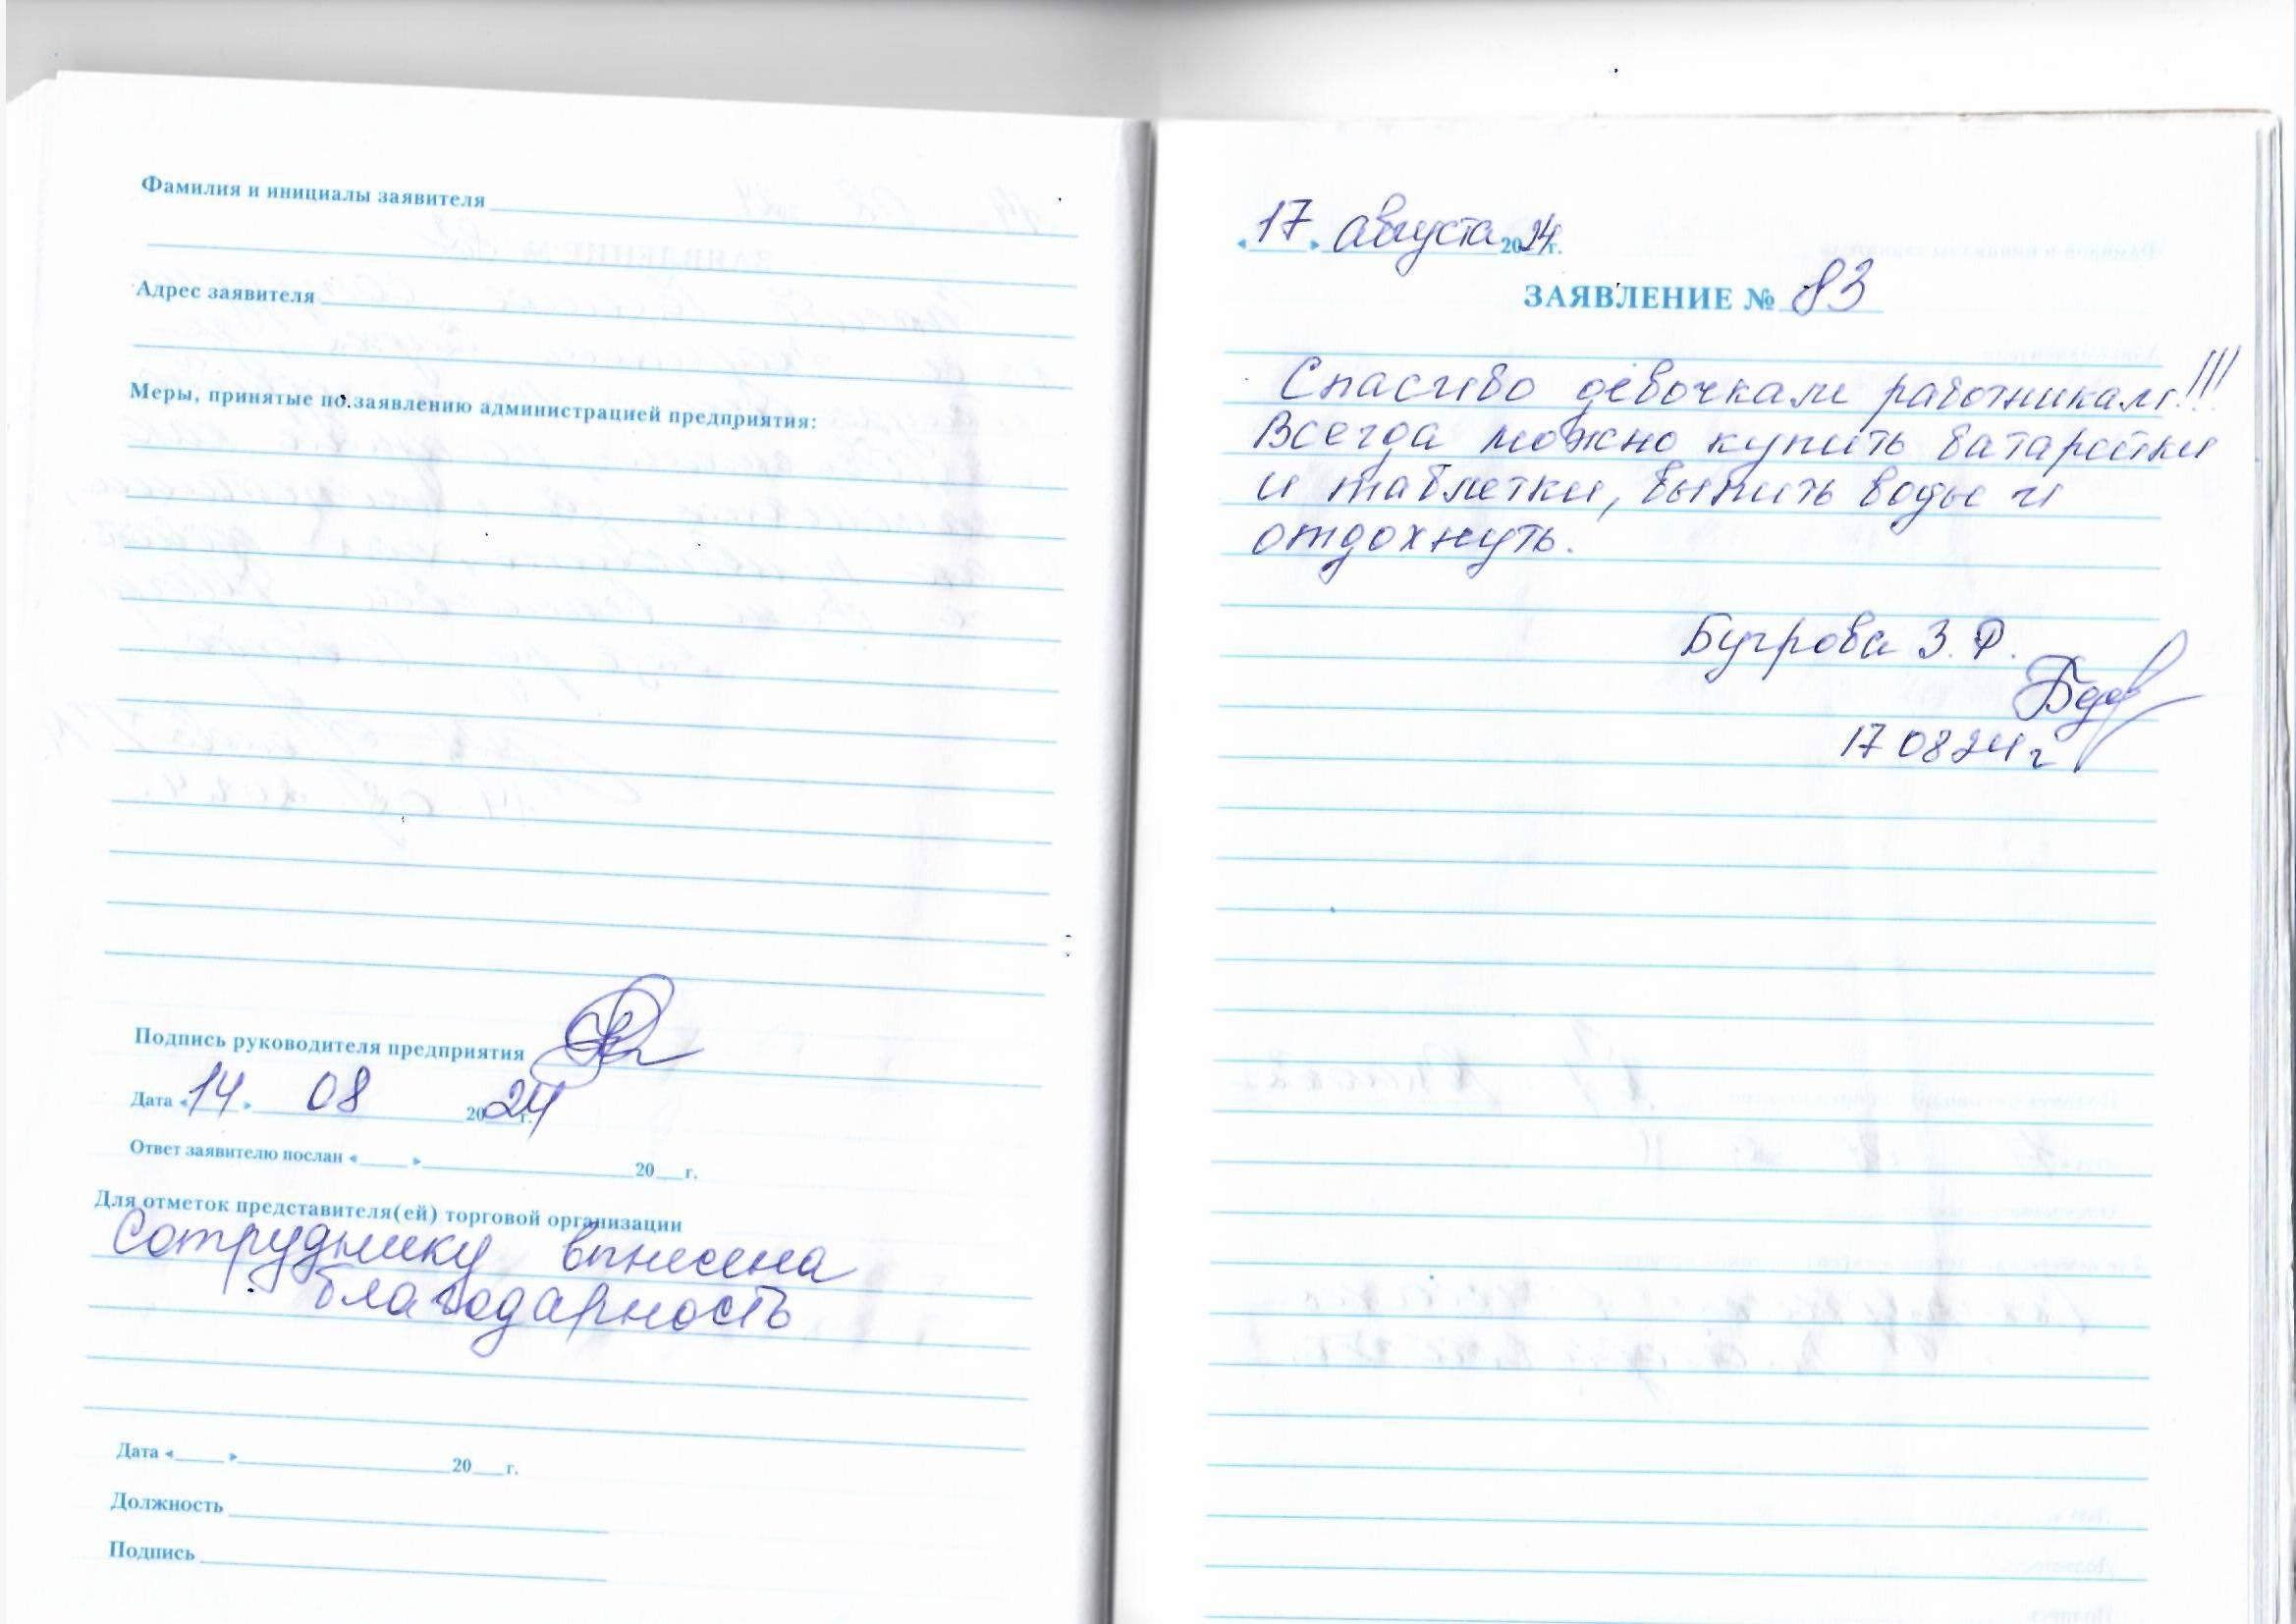 Фамилия и инициалы заявителя
Адрес заявителя
Меры, принятые по заявлению администрацией предприятия:
Подпись руководителя предприятия
Дата «14» 08 2024г.
Ответ заявителю послан «____» ____ 20__г.
Для отметок представителя(ей) торговой организации
Сотруднику вынесена
благодарность
Дата «____» ____ 20__г.
Должность
Подпись
«17» августа 2024г.
ЗАЯВЛЕНИЕ № 83
Спасибо девочкам работникам!!!
Всегда можно купить батарейки
и таблетки, выпить воды и
отдохнуть.
Бугрова З. Ф.
17 08 24 г